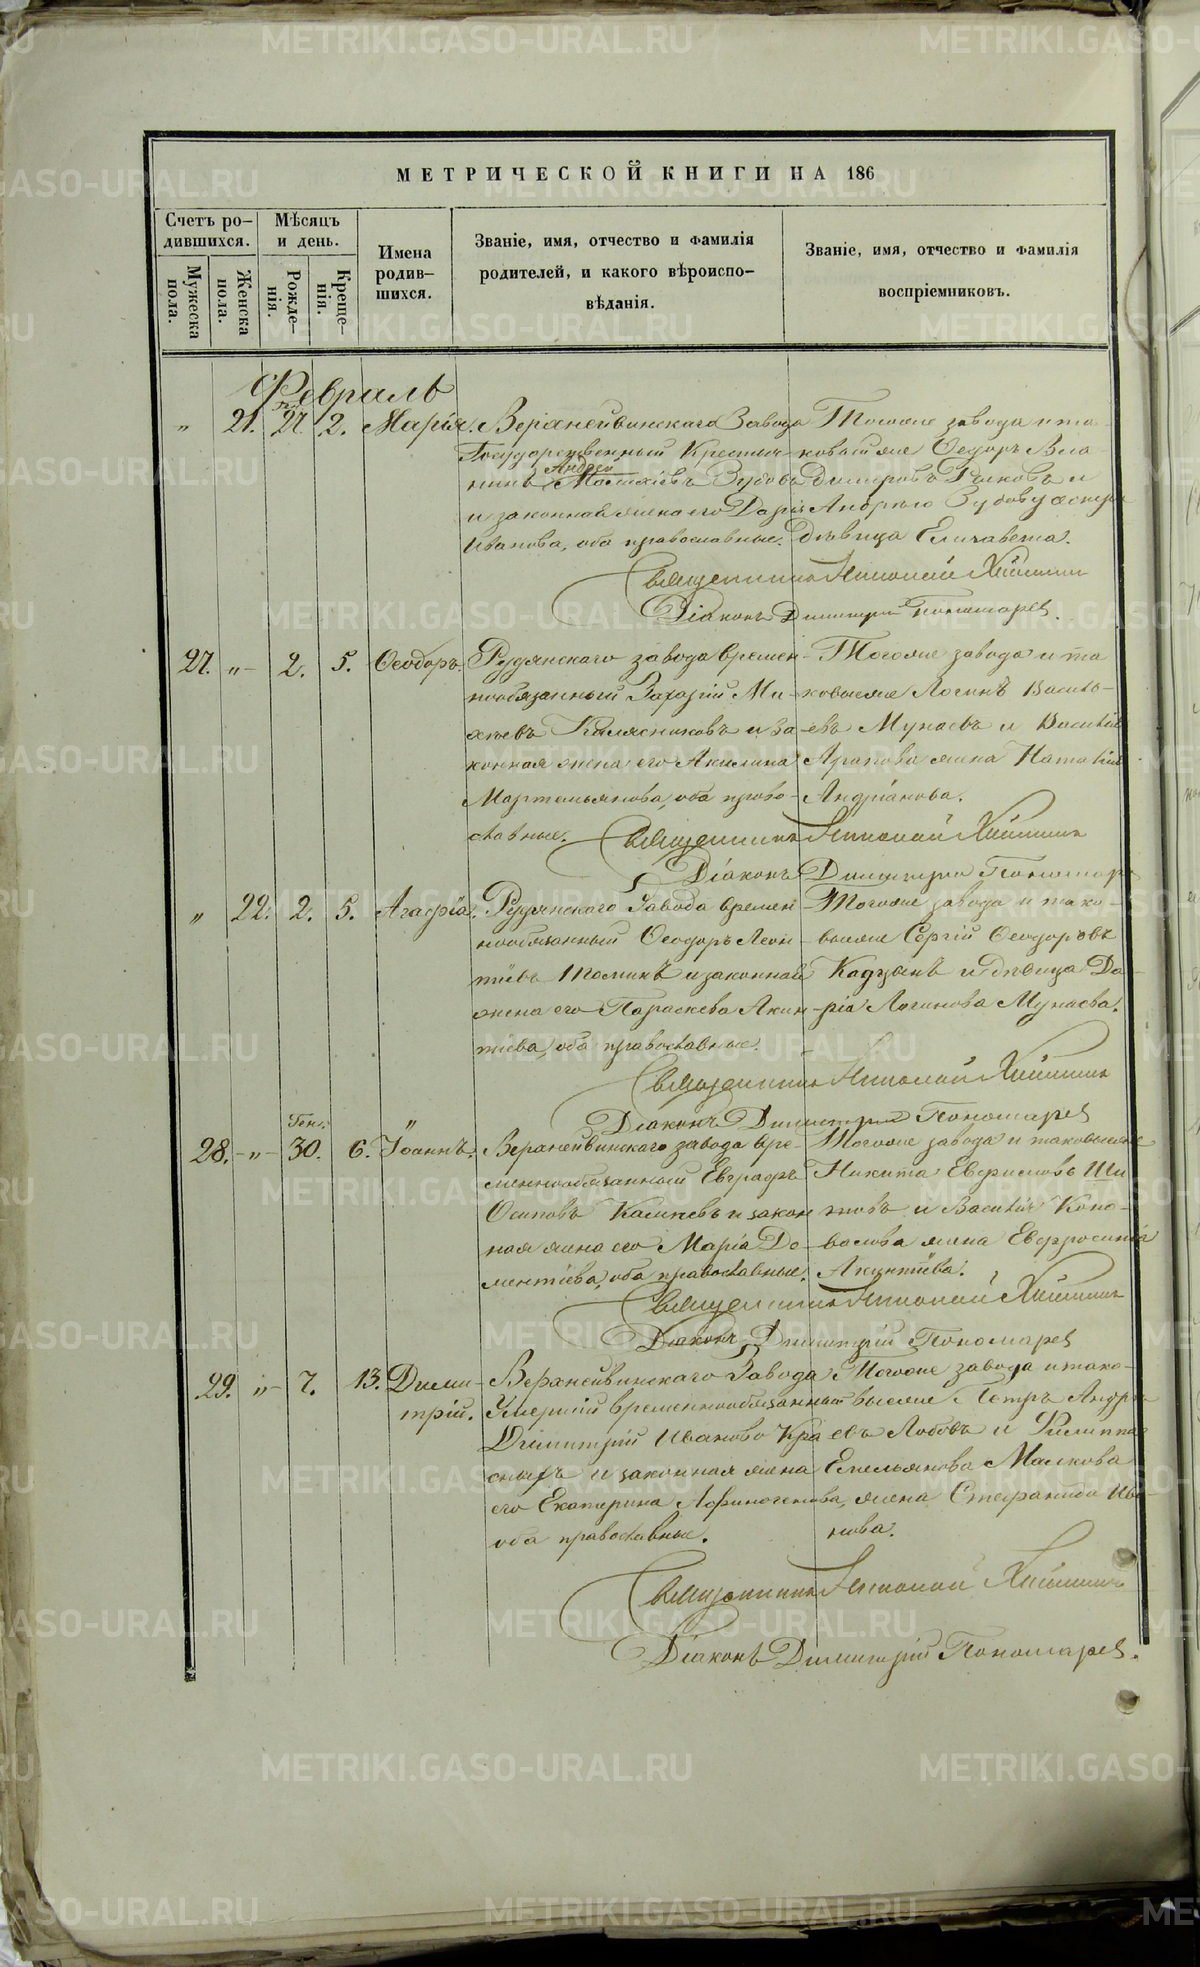 МЕТРИЧЕСКОЙ КНИГИ НА 186
Счетъ родившихся.
Мѣсяцъ и день.
Имена родившихся.
Званіе, имя, отчество и фамилія родителей, и какого вѣроисповѣданія.
Званіе, имя, отчество и фамилія воспріемниковъ.
Мужеска пола.
Женска пола.
Рожденія.
Крещенія.
Февраль
" 21. 27 2. Марія. Верхнейвинскаго Завода
Государственный Крестья-
Андрей
нинъ Зубовъ
и законная жена его Дарія
Иванова, оба православные.
Тогоже завода и та-
ковый же Ѳедоръ Вла-
димировъ и
Андрея Зубова дочерь
дѣвица Елизавета.
Священникъ Николай
Діаконъ Димитрій Пономаревъ
27. " 2. 5. Ѳеодоръ. Рудянскаго завода времен-
нообязанный Захарій Ми-
хѣевъ и за-
конная жена его Акилина
Мартемьянова, оба право-
славные.
Тогоже завода и та-
ковые же Логинъ Василь-
евъ Мунаевъ и Василія
Арапова жена Наталія
Андріанова.
Священникъ Николай
Діаконъ Димитрій Пономаревъ
" 22. 2. 5. Агафія. Рудянскаго Завода времен-
нообязанный Ѳеодоръ Леон-
тіевъ и законная
жена его Параскева Акин-
тіева, оба православные.
Тогоже завода и тако-
выеже Сергій Ѳеодоровъ
и дѣвица Да-
рія Логинова Мунаева.
Священникъ Николай
Діаконъ Димитрій Пономаревъ
Ген.
28. " 30. 6. Іоаннъ. Верхнейвинскаго завода вре-
меннообязанный Евграфъ
Осиповъ и закон
ная жена его Марія До-
ментіева, оба православные.
Тогоже завода и таковыеже
Никита и Василія Коно-
валова жена Евфросинія
Священникъ Николай
Діаконъ Димитрій Пономаревъ
29. " 7. 13. Дими-
трій.
Верхнейвинскаго Завода
Умершій временнообязанный
Димитрій Ивановъ
и законная жена
его Екатерина Афиногенова,
оба православные.
Тогоже завода и тако-
выеже Петръ Андре
евъ Лобовъ и Филиппа
Емельянова Малкова
жена Стефанида Ива-
нова.
Священникъ Николай
Діаконъ Димитрій Пономаревъ.
METRIKI.GASO-URAL.RU